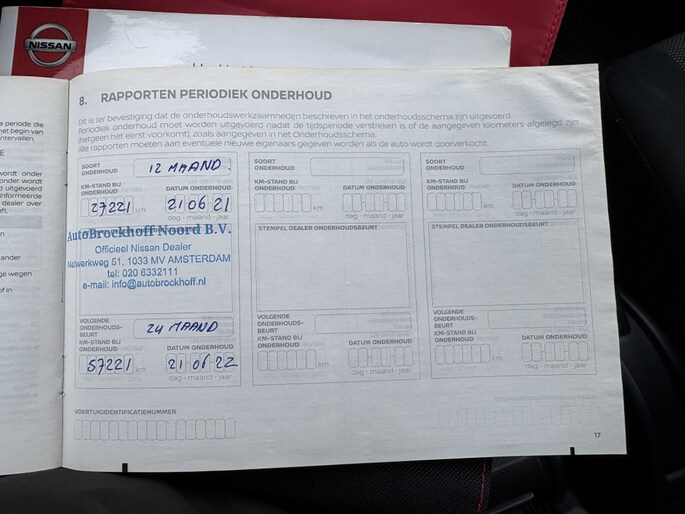 NISSAN
8. RAPPORTEN PERIODIEK ONDERHOUD
Dit is ter bevestiging dat de onderhoudswerkzaamheden beschreven in het onderhoudsschema zijn uitgevoerd.
Periodiek onderhoud moet worden uitgevoerd nadat de tijdsperiode verstreken is of de aangegeven kilometers afgelegd zijn
(hetgeen het eerst voorkomt), zoals aangegeven in het Onderhoudsschema.
Alle rapporten moeten aan eventuele nieuwe eigenaars gegeven worden als de auto wordt doorverkocht.
SOORT ONDERHOUD 12 MAAND.
KM-STAND BIJ ONDERHOUD DATUM ONDERHOUD
27221 km 21 06 21
dag - maand - jaar
AutoBrockhoff Noord B.V.
Officieel Nissan Dealer
Netwerkweg 51, 1033 MV AMSTERDAM
tel: 020 6332111
e-mail: info@autobrockhoff.nl
VOLGENDE ONDERHOUDS-BEURT 24 MAAND
KM-STAND BIJ ONDERHOUD DATUM ONDERHOUD
57221 km 21 06 22
dag - maand - jaar
SOORT ONDERHOUD
KM-STAND BIJ ONDERHOUD DATUM ONDERHOUD
km
dag - maand - jaar
STEMPEL DEALER ONDERHOUDSBEURT
VOLGENDE ONDERHOUDS-BEURT
KM-STAND BIJ ONDERHOUD DATUM ONDERHOUD
km
dag - maand - jaar
SOORT ONDERHOUD
KM-STAND BIJ ONDERHOUD DATUM ONDERHOUD
km
dag - maand - jaar
STEMPEL DEALER ONDERHOUDSBEURT
VOLGENDE ONDERHOUDS-BEURT
KM-STAND BIJ ONDERHOUD DATUM ONDERHOUD
km
dag - maand - jaar
VOERTUIGIDENTIFICATIENUMMER
17